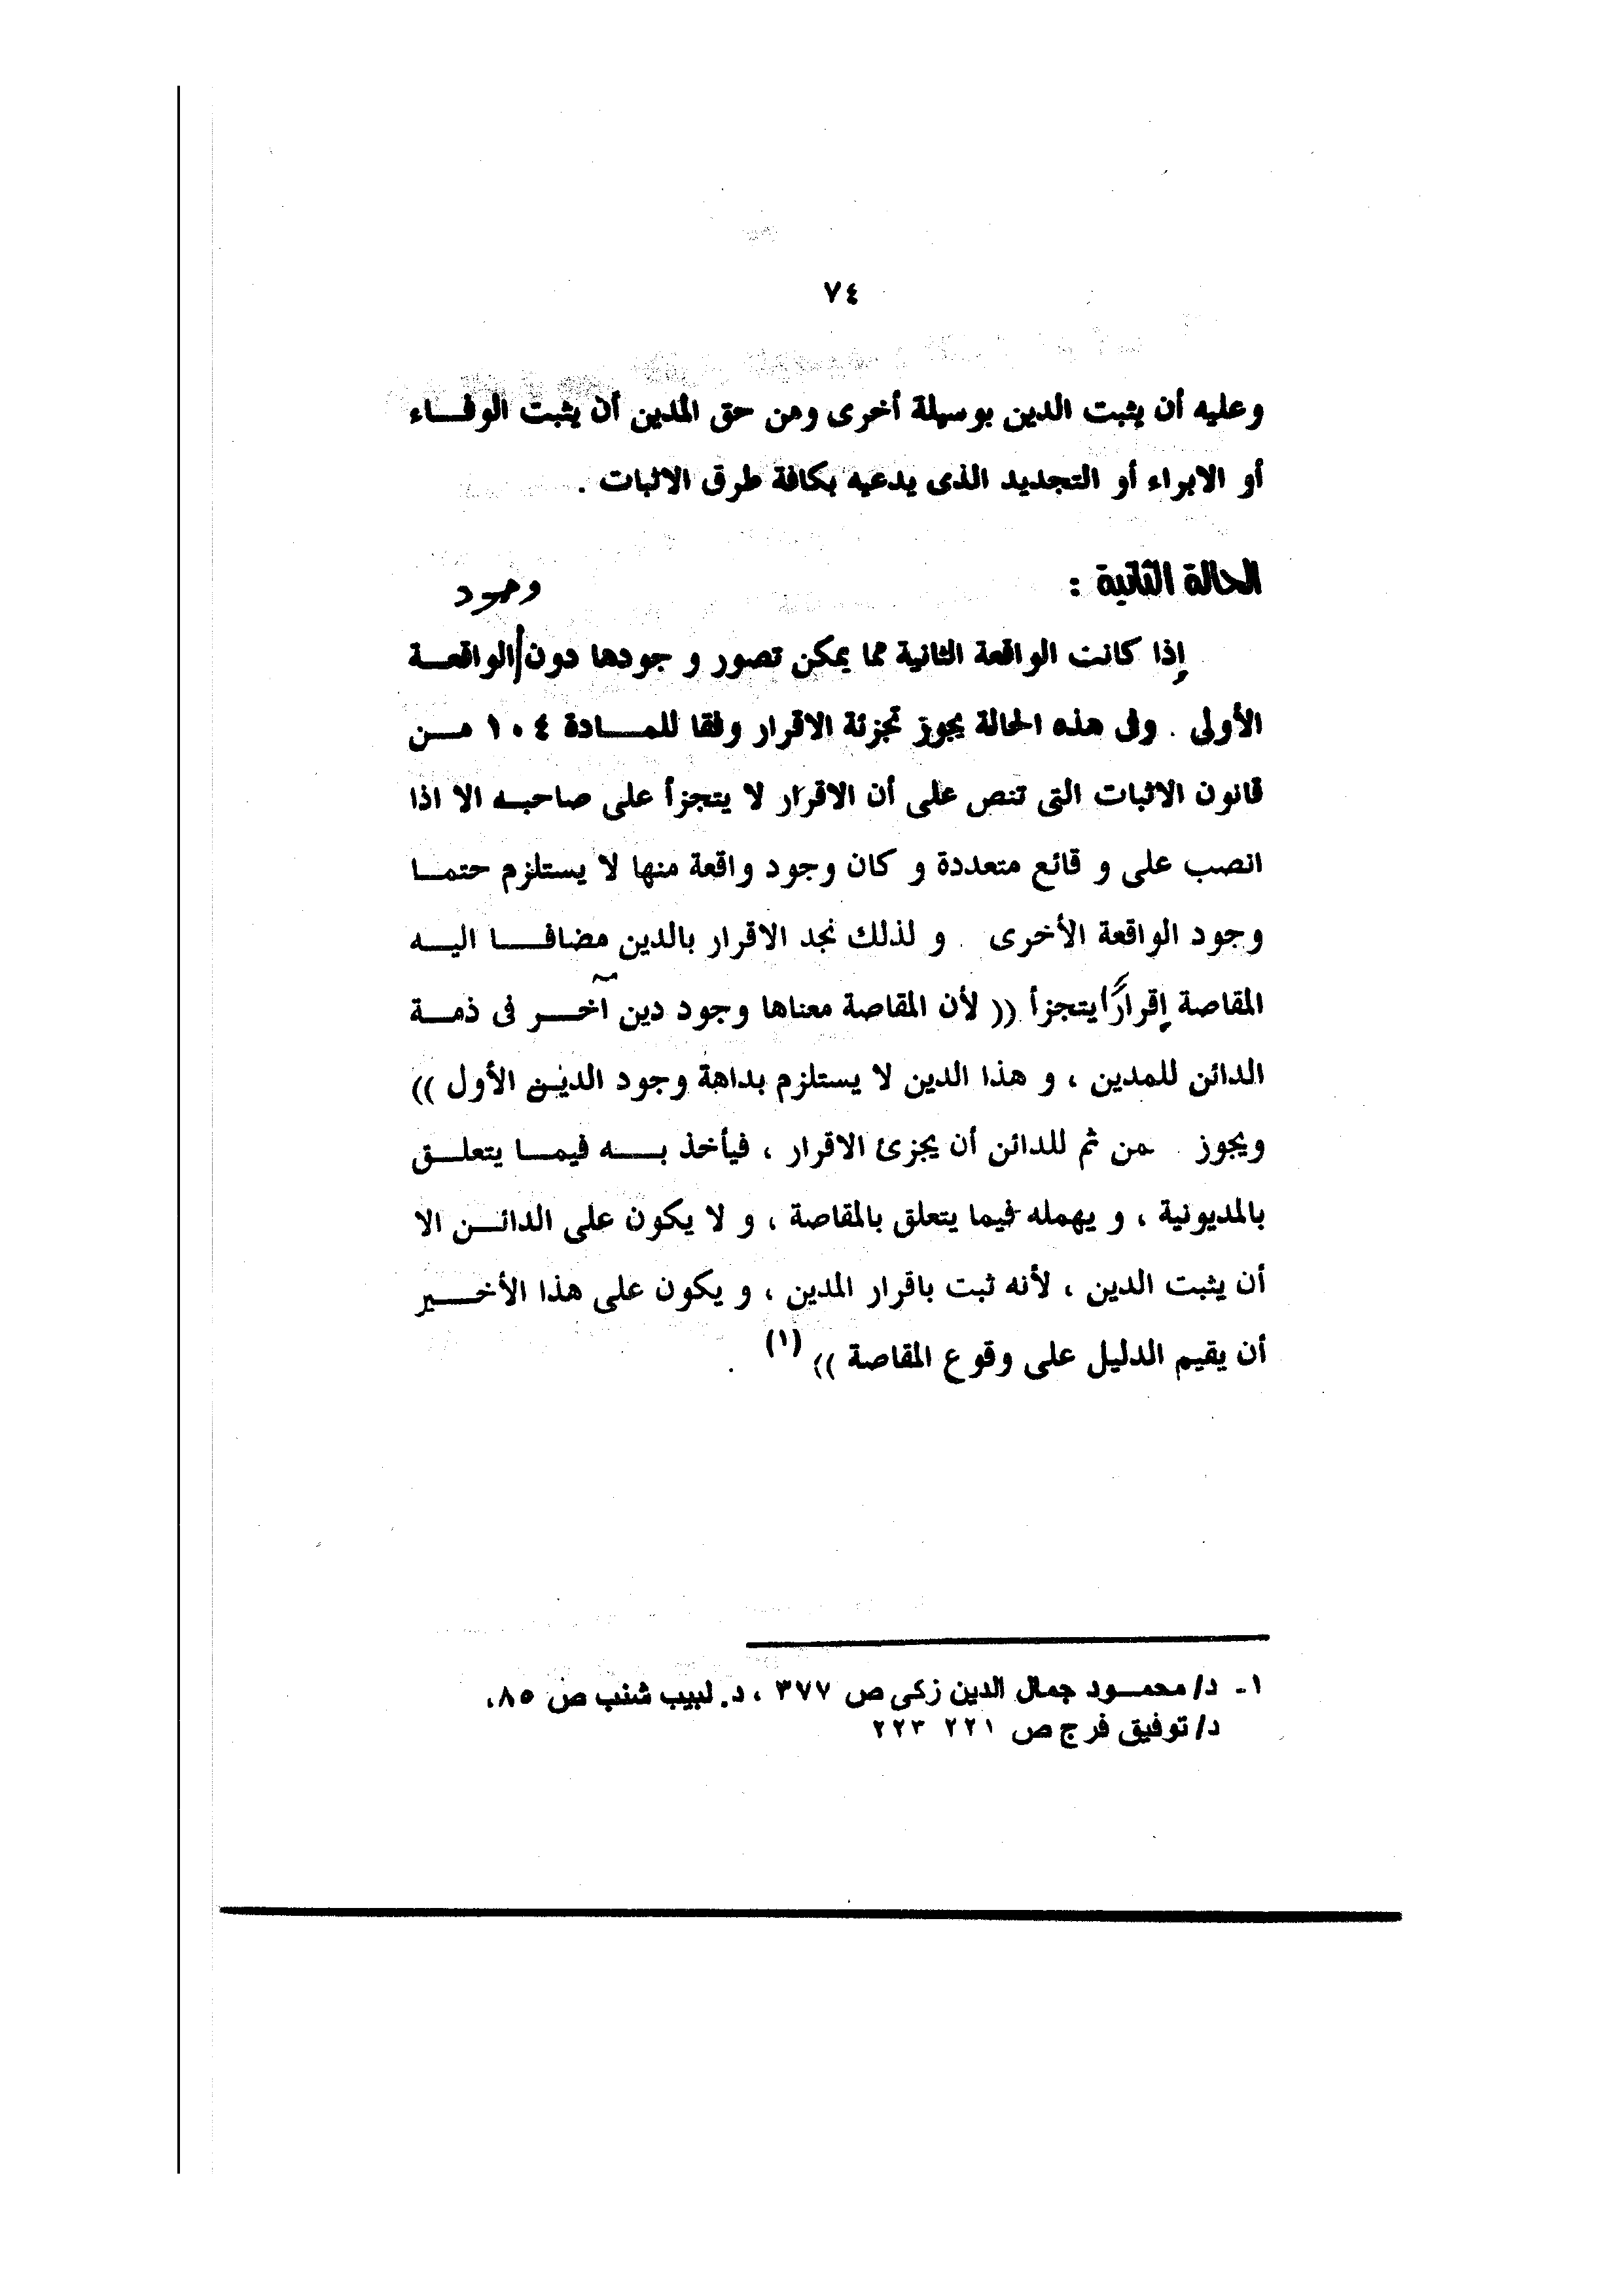 ٧٤
وعليه أن يثبت الدين بوسيلة أخرى ومن حق المدين أن يثبت الوفاء
أو الابراء أو التجديد الذى يدعيه بكافة طرق الاثبات .
الحالة الثانية :
وجود
إذا كانت الواقعة الثانية مما يمكن تصور و جودها دون/الواقعة
الأولى . وفى هذه الحالة يجوز تجزئة الاقرار وفقا للمادة ١٠٤ من
قانون الاثبات التى تنص على أن الاقرار لا يتجزأ على صاحبه الا اذا
انصب على و قائع متعددة و كان وجود واقعة منها لا يستلزم حتما
وجود الواقعة الأخرى . و لذلك نجد الاقرار بالدين مضافا اليه
المقاصة إقرارًا يتجزأ (( لأن المقاصة معناها وجود دين آخر فى ذمة
الدائن للمدين ، و هذا الدين لا يستلزم بداهة وجود الدين الأول ))
ويجوز من ثم للدائن أن يجزئ الاقرار ، فيأخذ به فيما يتعلق
بالمديونية ، و يهمله فيما يتعلق بالمقاصة ، و لا يكون على الدائن الا
أن يثبت الدين ، لأنه ثبت باقرار المدين ، و يكون على هذا الأخير
أن يقيم الدليل على وقوع المقاصة )) (١) .
١- د/ محمود جمال الدين زكى ص ٣٧٧ ، د. لبيب شنب ص ٨٥،
د/ توفيق فرج ص ٢٢١ ٢٢٣